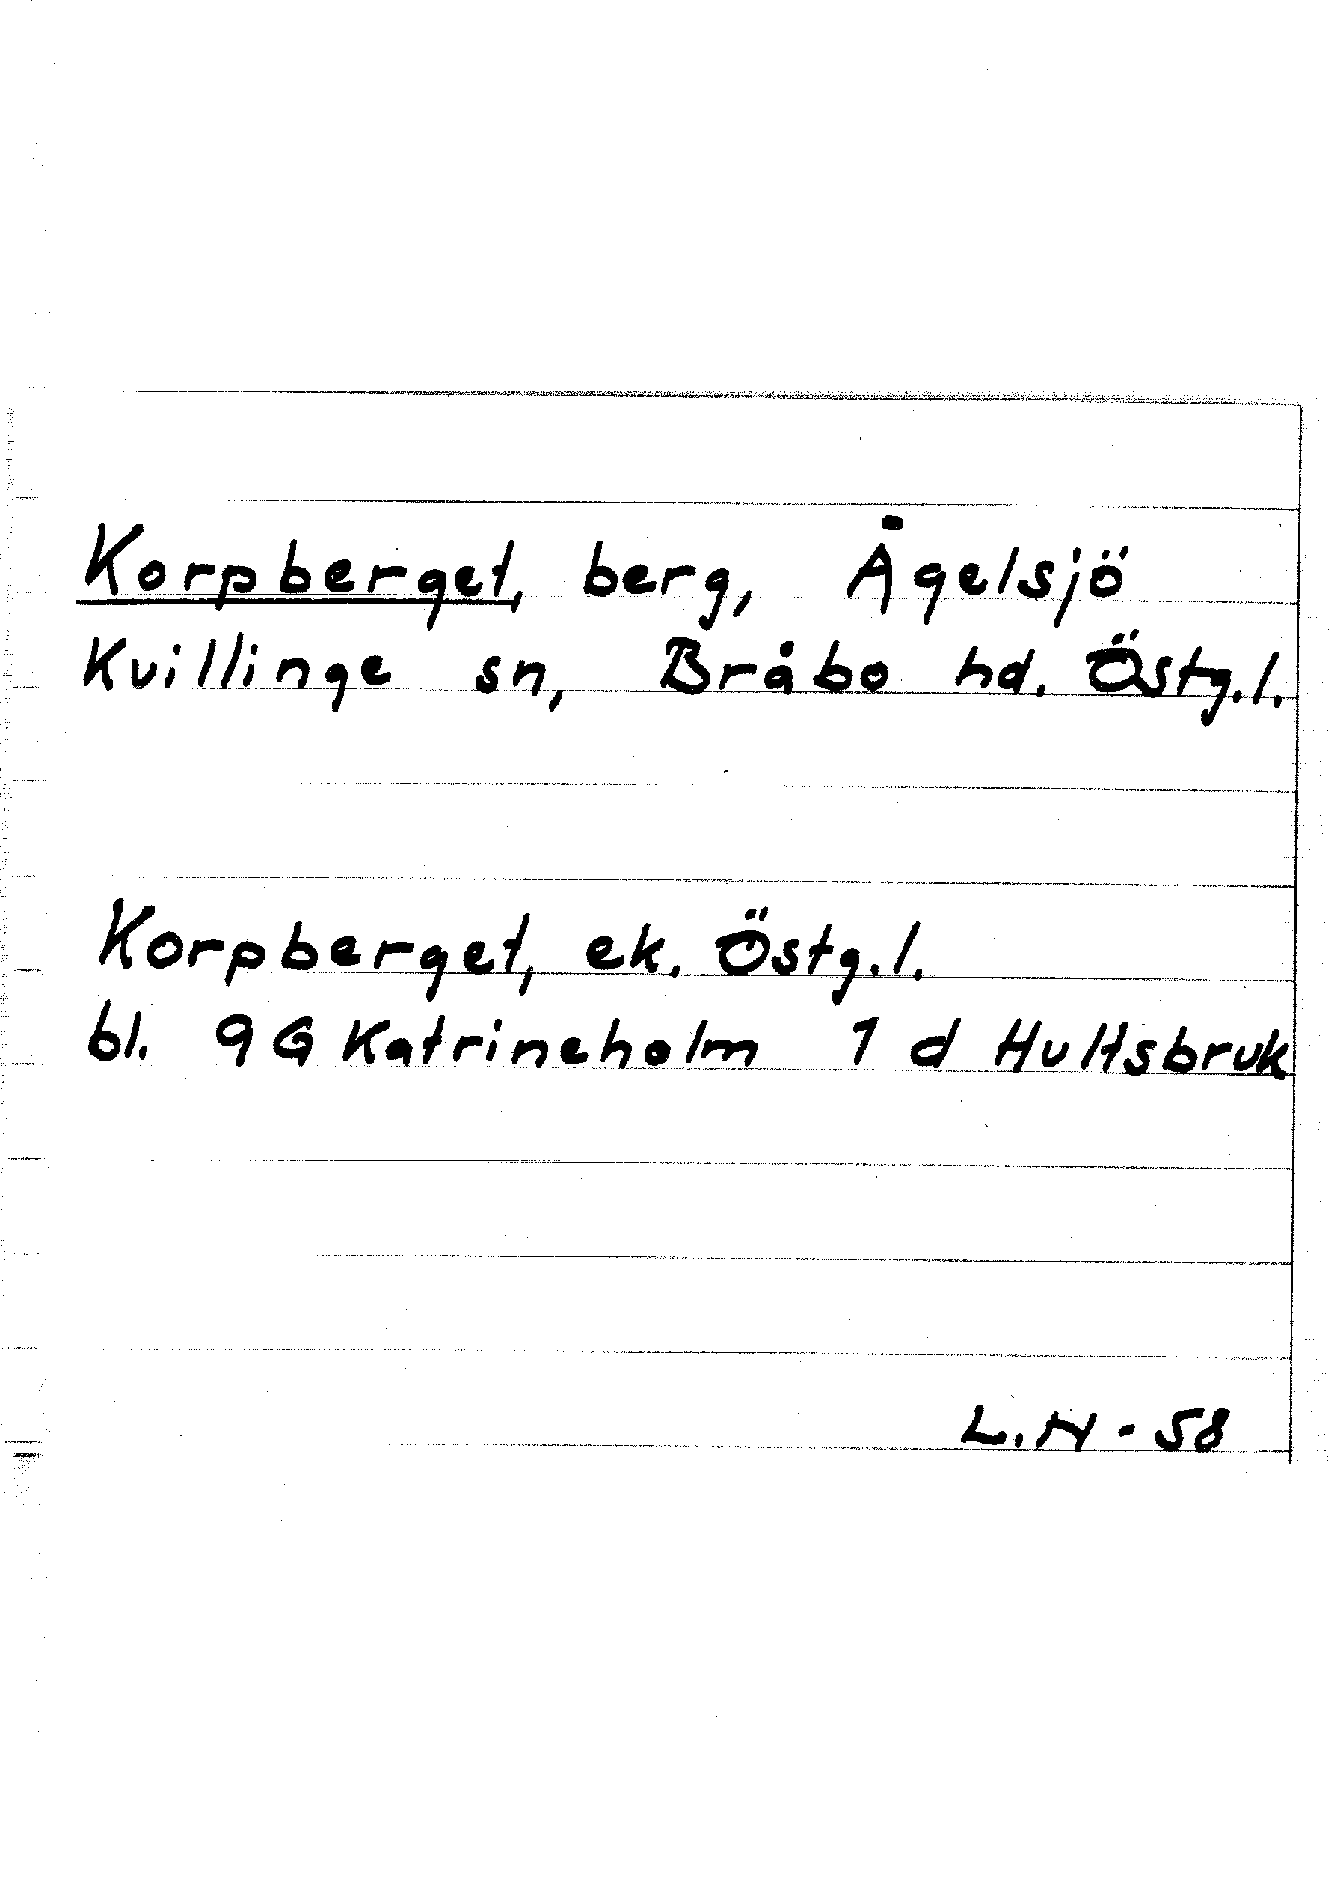 Korpberget, berg, Ågelsjö
Kvillinge sn, Bråbo hd. Östg.l.
Korpberget, ek. Östg.l.
bl. 9 G Katrineholm 1 d Hultsbruk
L.N - 58